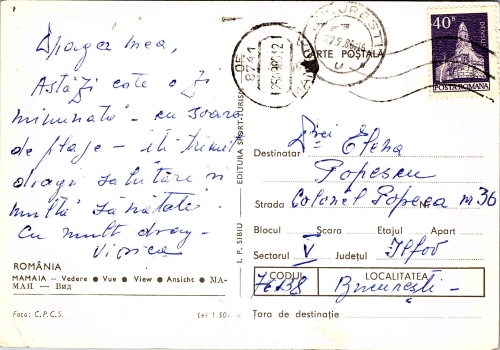 Dragea mea,
Astăzi este o zi
minunată - cu soare
de plaje - iti trimit
dragi salutări si
multă sănatate.
Cu mult drag -
Viorica
ROMÂNIA
MAMAIA — Vedere ● Vue ● View ● Ansicht ● МА-
МАЯ — Вид
Foto: C.P.C.S.
Lei 1.50
I. P. SIBIU
EDITURA SPORT-TURISM
8741
BUCUREȘTI
CARTE POȘTALĂ
40B
DENSUȘ
POSTA ROMANA
Destinatar D-rei Elena
Popescu
Strada Colonel Popeea Nr. 36
Blocul Scara Etajul Apart
Sectorul V Județul Ilfov
CODUL LOCALITATEA
76238 Bucuresti -
Țara de destinație